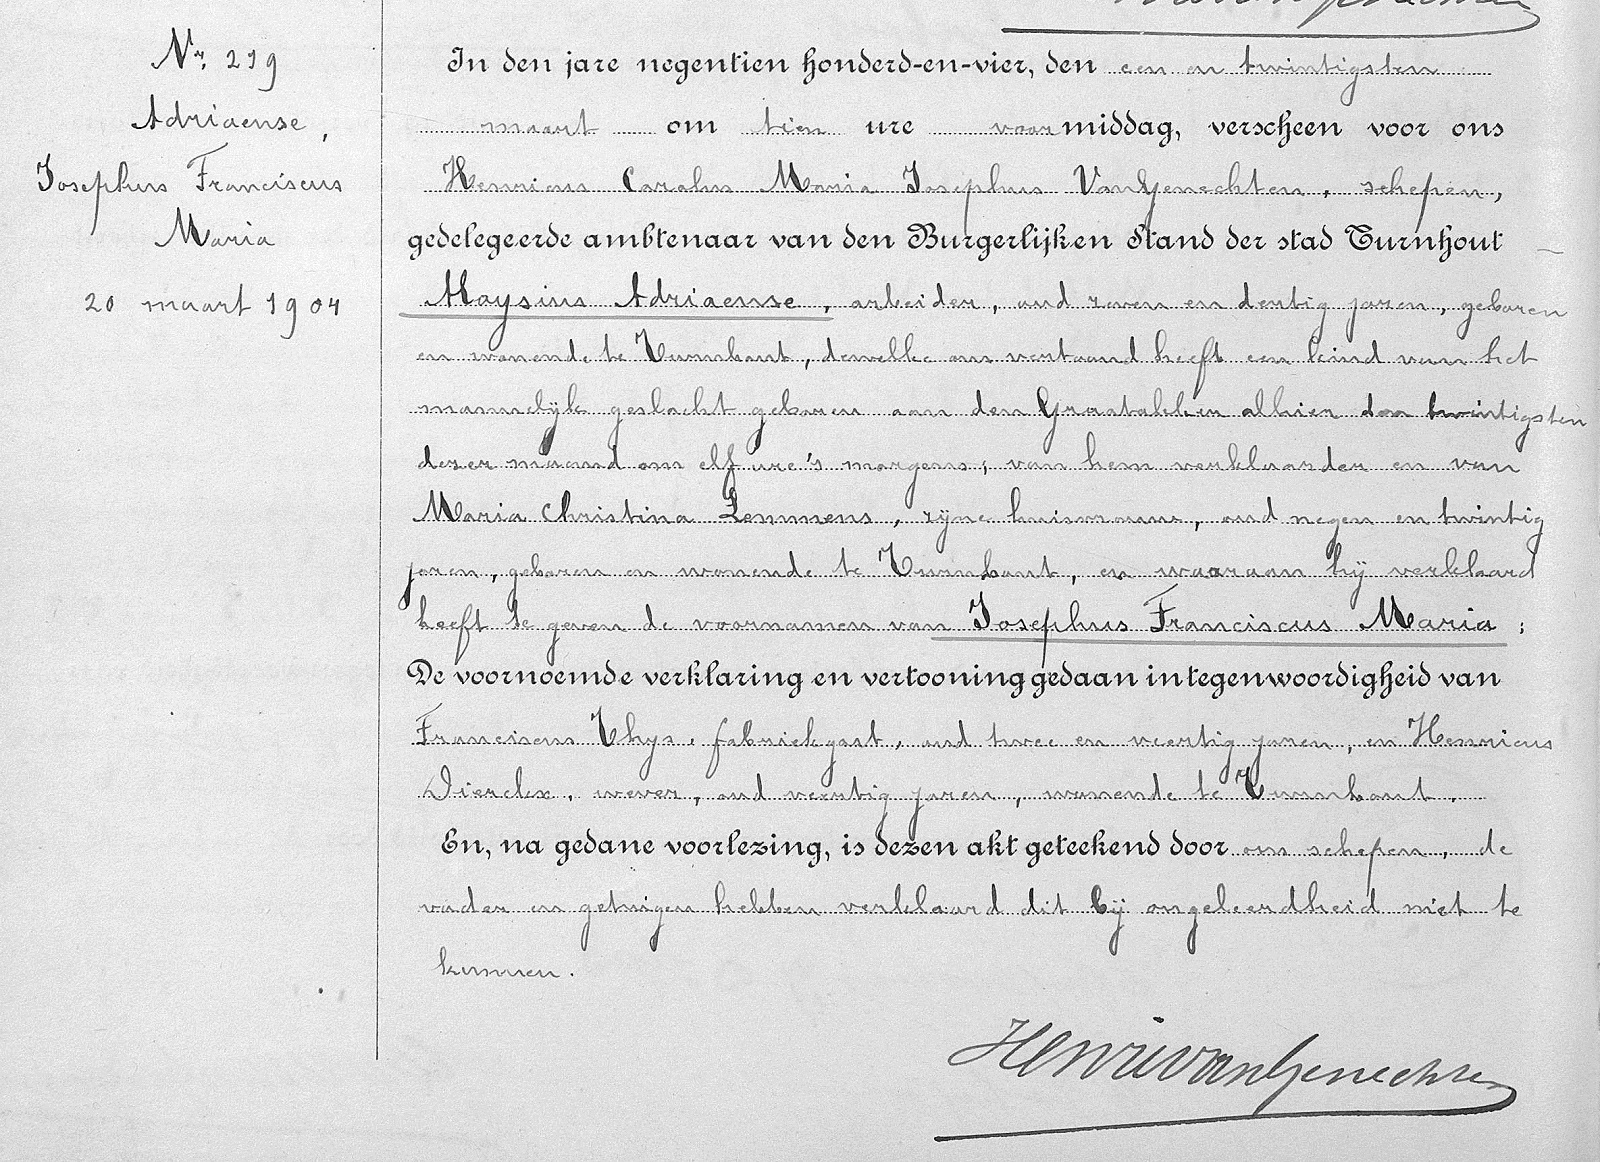 Nr. 219
Adriaense,
Josephus Franciscus
Maria
20 maart 1904
In den jare negentien honderd-en-vier, den een en twintigsten
maart om tien ure voormiddag, verscheen voor ons
Henricus Carolus Maria Josephus VanGenechten, schepen,
gedelegeerde ambtenaar van den Burgerlijken Stand der stad Turnhout
Aloysius Adriaense, arbeider, oud zeven en dertig jaren, geboren
en wonende te Turnhout, dewelke ons vertoond heeft een kind van het
mannelijk geslacht geboren aan den Graatakker alhier den twintigsten
dezer maand om elf ure 's morgens, van hem verklaarder en van
Maria Christina Lemmens, zijne huisvrouw, oud negen en twintig
jaren, geboren en wonende te Turnhout, en waaraan hij verklaard
heeft te geven de voornamen van Josephus Franciscus Maria;
De voornoemde verklaring en vertooning gedaan in tegenwoordigheid van
Franciscus Thys, fabriekgast, oud twee en veertig jaren, en Henricus
Dierckx, wever, oud veertig jaren, wonende te Turnhout.
En, na gedane voorlezing, is dezen akt geteekend door ons schepen, de
vader en getuigen hebben verklaard dit bij ongeleerdheid niet te
kunnen.
Henri van Genechten